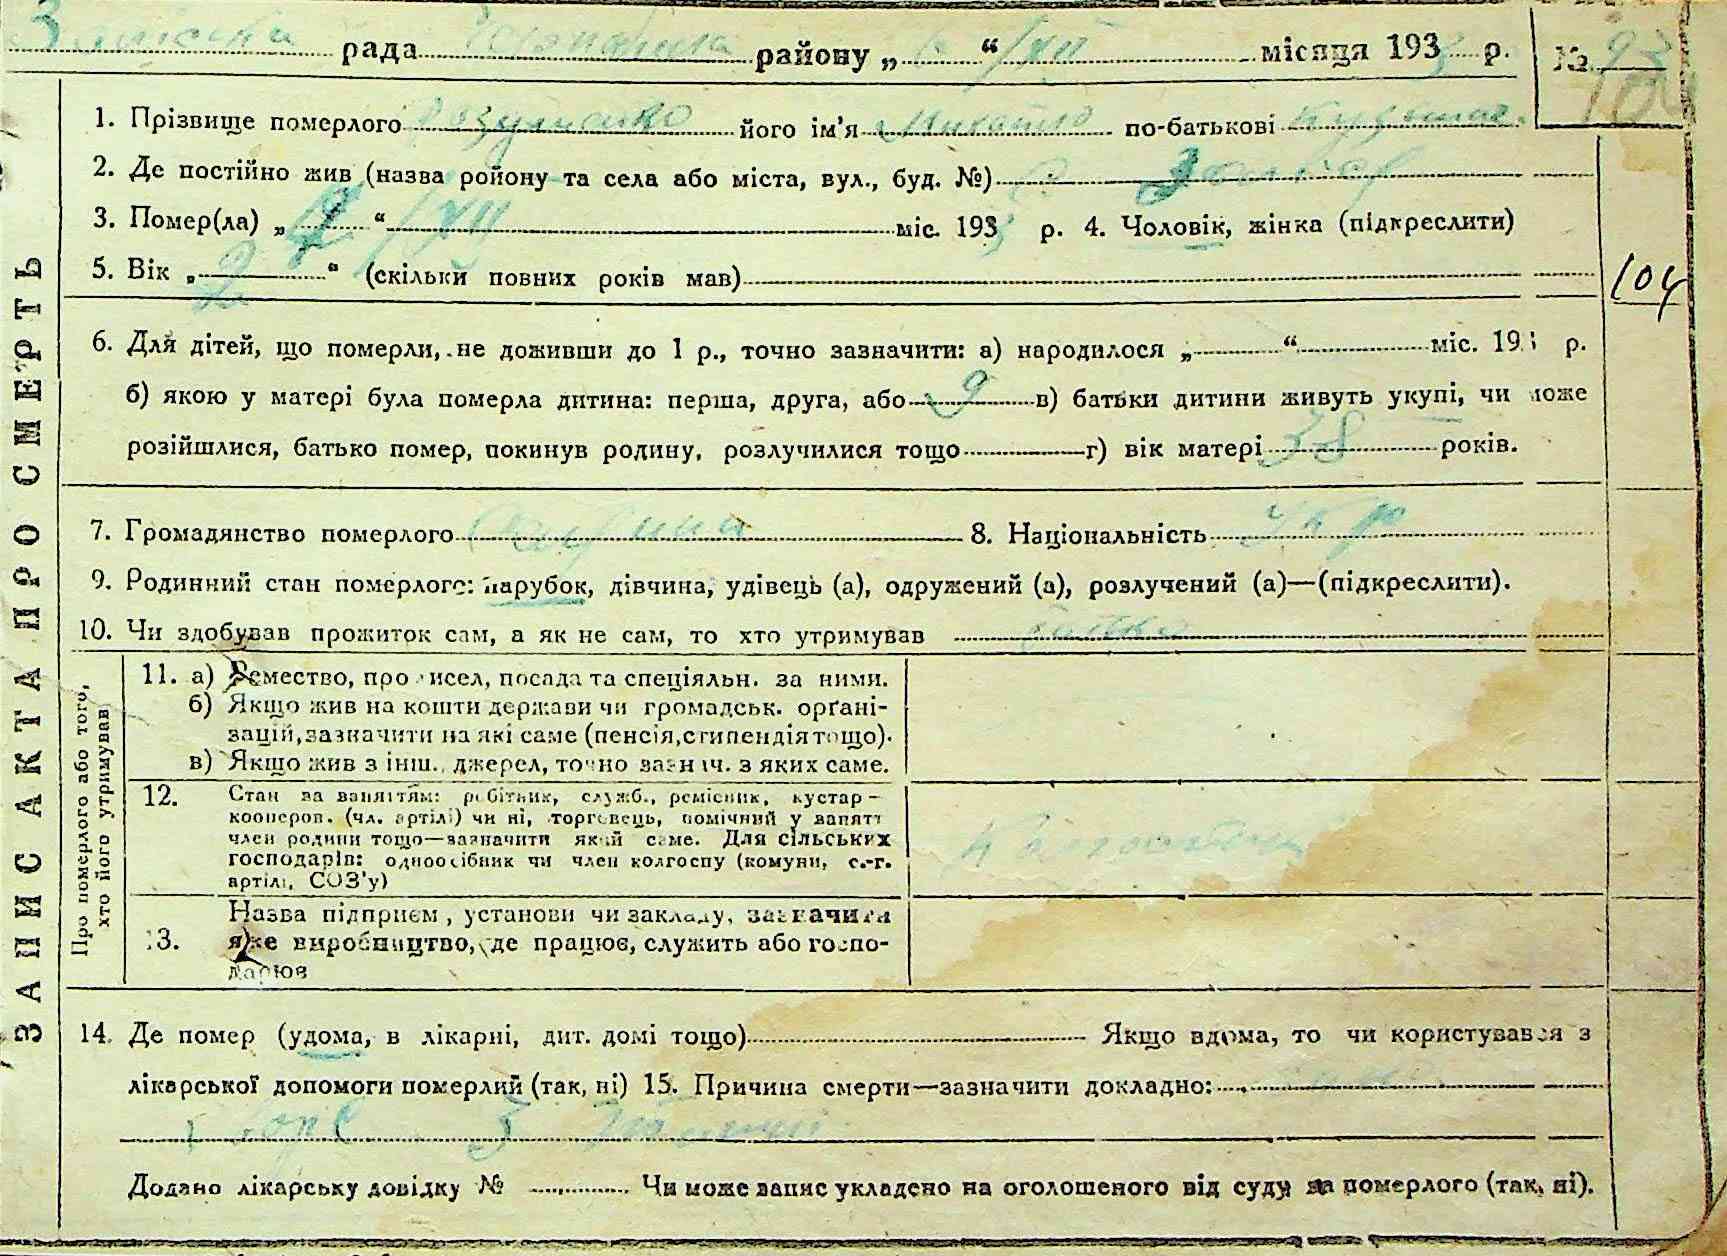 рада район у „ “ /XII місяця 193 р. № 93
104
1. Прізвище померлого його ім'я Михайло по-батькові
2. Де постійно жив (назва ройону та села або міста, вул., буд. №) с.
3. Помер(ла) „ “ /XII міс. 193 р. 4. Чоловік, жінка (підкреслити)
5. Вік „ 2 “ (скільки повних років мав)
104
6. Для дітей, що померли, не доживши до 1 р., точно зазначити: а) народилося „ “ міс. 193 р.
б) якою у матері була померла дитина: перша, друга, або 9 в) батьки дитини живуть укупі, чи може
розійшлися, батько помер, покинув родину, розлучилися тощо г) вік матері 38 років.
7. Громадянство померлого 8. Національність Укр
9. Родинний стан померлого: парубок, дівчина, удівець (а), одружений (а), розлучений (а)—(підкреслити).
10. Чи здобував прожиток сам, а як не сам, то хто утримував батько
ЗАПИС АКТА ПРО СМЕРТЬ
Про померлого або того,
хто його утримував
11. а) Ремество, промисел, посада та спеціяльн. за ними.
б) Якщо жив на кошти держави чи громадськ. орґані-
зацій, зазначити на які саме (пенсія, стипендія тощо).
в) Якщо жив з інш. джерел, точно зазнач. з яких саме.
12. Стан за заняттям: робітник, служб., ремісник, кустар-
кооперов. (чл. артілі) чи ні, торговець, помічний у занятт
член родини тощо—зазначити який саме. Для сільських
господарів: одноосібник чи член колгоспу (комуни, с.-г.
артілі, СОЗ'у)
13. Назва підприєм, установи чи закладу, зазначити
яке виробництво, де працює, служить або госпо-
дарює
14. Де помер (удома, в лікарні, дит. домі тощо) Якщо вдома, то чи користувався з
лікарської допомоги померлий (так, ні) 15. Причина смерти—зазначити докладно:
Додано лікарську довідку № Чи може запис укладено на оголошеного від суду за померлого (так, ні).